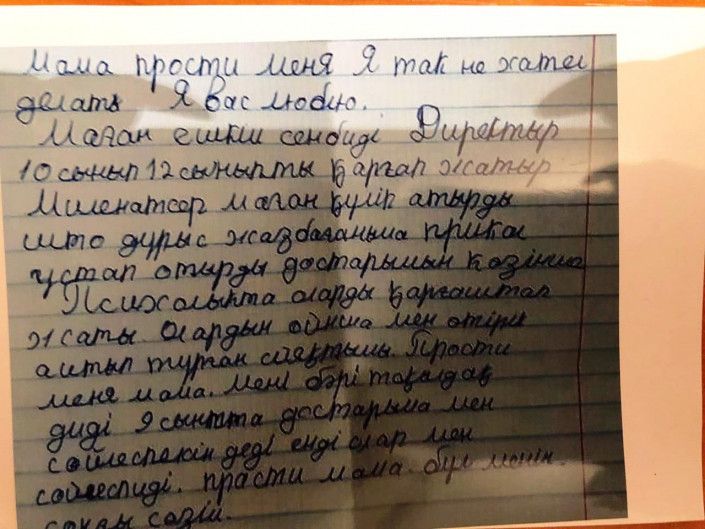 Мама прости меня Я так не хател
делать Я вас люблю.
Маған ешкім сенбиді Директыр
10 сынып 12 сыныпты қарғап жатыр
Миленатсер маған күліп атырды
што дурыс жазбағаныма прикол
ұстап отырды достарымын көзінша
Психолыкта оларды қарғаштап
жаты. Олардын ойнша мен өтірік
аитып тұрған сияқтымы. Прости
меня мама. Мені бәрі
диді 9 сынпта достарыма мен
сөйлеспекін деді енді олар мен
сөйлеспиді. прасти мама бұл менің.
соңғы сөзім.